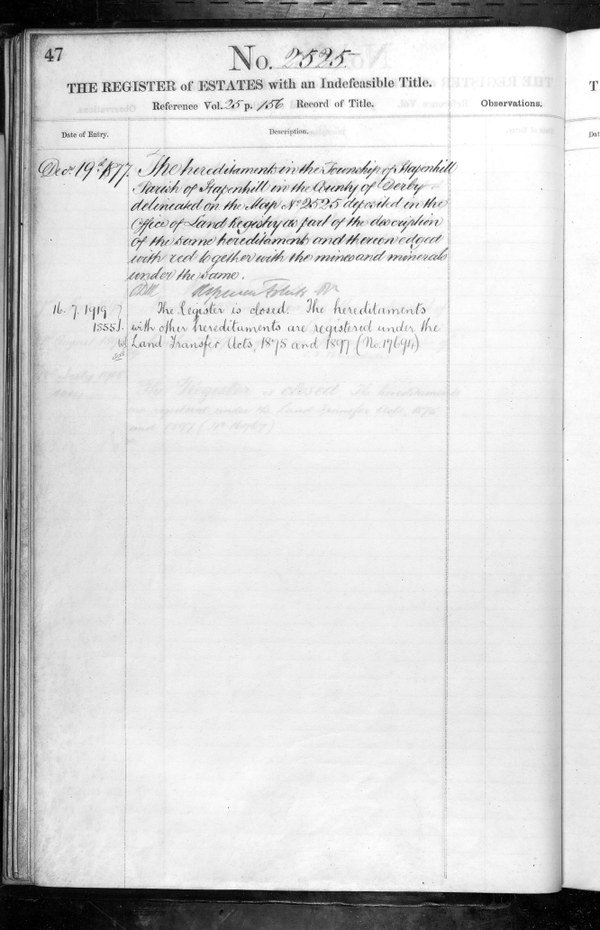 47
No. 2525
THE REGISTER of ESTATES with an Indefeasible Title.
Reference Vol. 25 p. 156 Record of Title.
Observations.
Date of Entry.
Description.
Decr 19th 1877. The hereditaments in the Township of Stapenhill
Parish of Stapenhill in the County of Derby
delineated on the Map No 2525 deposited in the
Office of Land Registry as part of the description
of the same hereditaments and thereon edged
with red together with the mines and minerals
under the same.
16. 7. 1919 The Register is closed. The hereditaments
1355 with other hereditaments are registered under the
Land Transfer Acts, 1875 and 1897 (No.